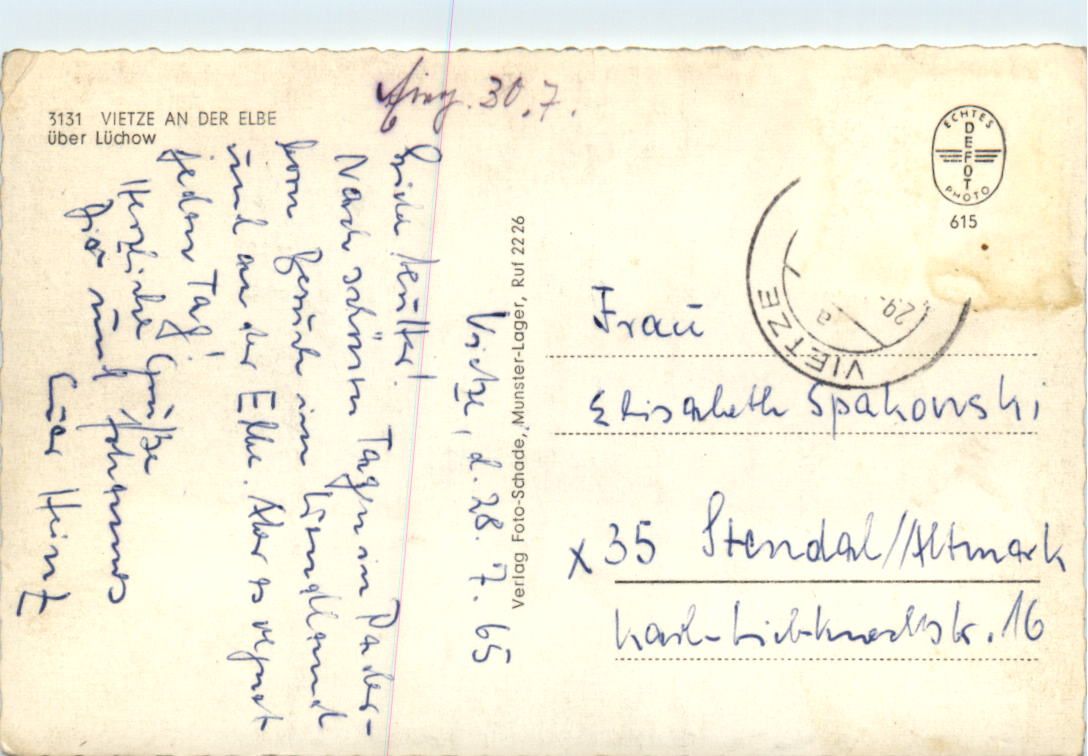 3131 VIETZE AN DER ELBE
über Lüchow
30.7.
Vietze, d. 28. 7. 65
Nach schönen Tagen in Pader-
born Besuch im Wendland
und an der Elbe. Aber es regnet
jeden Tag!
Herzliche Grüße
Dir und Johannes
Euer Heinz
Verlag Foto-Schade, Munster-Lager, Ruf 2226
ECHTES
DEFOT
PHOTO
615
VIETZE
a
29.
Frau
Elisabeth Spakowski
x 35 Stendal/Altmark
Karl-Liebknechtstr. 16